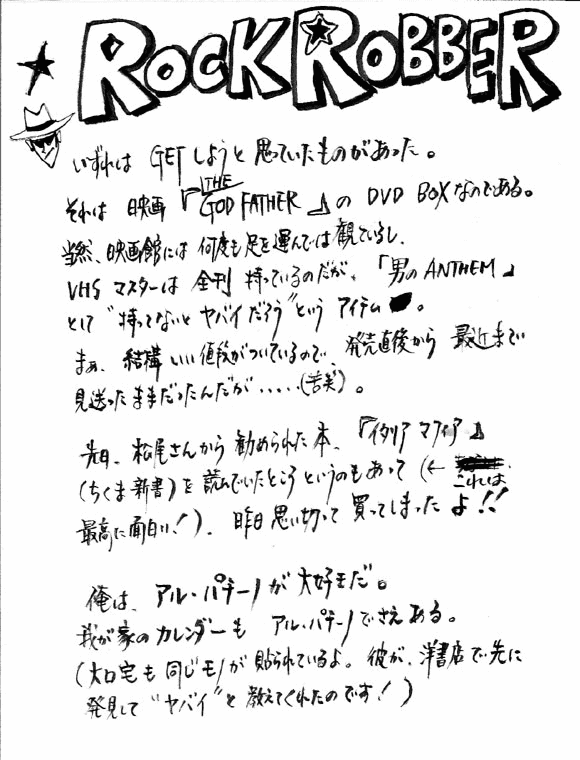 ROCK ROBBER
いずれは GETしようと思っていたものがあった。
それは 映画『THE GOD FATHER』の DVD BOXなのである。
当然、映画館には何度も足を運んでは観ているし、
VHSマスターは全刊持っているのだが、「男のANTHEM」
として“持ってないとヤバイだろう”というアイテム。
まぁ、結構いい値段がついているので、発売直後から最近まで
見送ったままだったんだが.....(苦笑)。
先日、松尾さんから勧められた本、『イタリアマフィア』
(ちくま新書)を読んでいたところというのもあって(← これは
最高に面白い!)、昨日思い切って買ってしまったよ!!
俺は、アル・パチーノが大好きだ。
我が家のカレンダーも アル・パチーノでさえある。
(大口宅も同じモノが貼られているよ。彼が、洋書店で先に
発見して“ヤバイ”と教えてくれたのです!)